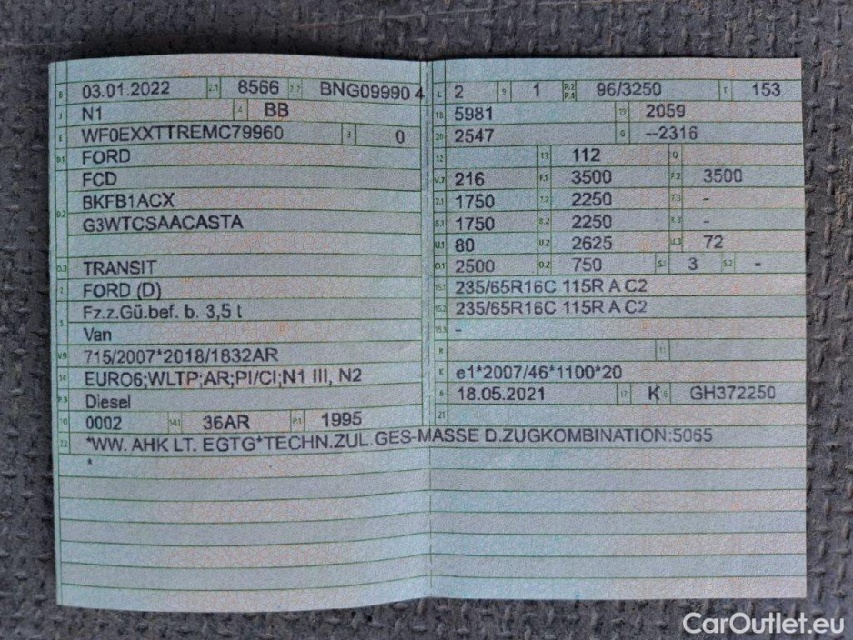 B 03.01.2022 2.1 8566 2.2 BNG09990 4
J N1 4 BB
E WF0EXXTTREMC79960 3 0
D.1 FORD
FCD
D.2 BKFB1ACX
G3WTCSAACASTA
D.3 TRANSIT
2 FORD (D)
5 Fz.z.Gü.bef. b. 3,5 t
Van
V.9 715/2007*2018/1832AR
14 EURO6;WLTP;AR;PI/CI;N1 III, N2
P.3 Diesel
10 0002 14.1 36AR P.1 1995
22 *WW. AHK LT. EGTG*TECHN.ZUL.GES-MASSE D.ZUGKOMBINATION:5065
*
L 2 9 1 P.2 P.4 96/3250 T 153
18 5981 19 2059
20 2547 G --2316
12 13 112 Q
V.7 216 F.1 3500 F.2 3500
7.1 1750 7.2 2250 7.3 -
8.1 1750 8.2 2250 8.3 -
U.1 80 U.2 2625 U.3 72
O.1 2500 O.2 750 S.1 3 S.2 -
15.1 235/65R16C 115R A C2
15.2 235/65R16C 115R A C2
15.3 -
R 11
K e1*2007/46*1100*20
6 18.05.2021 17 K 16 GH372250
21
CarOutlet.eu